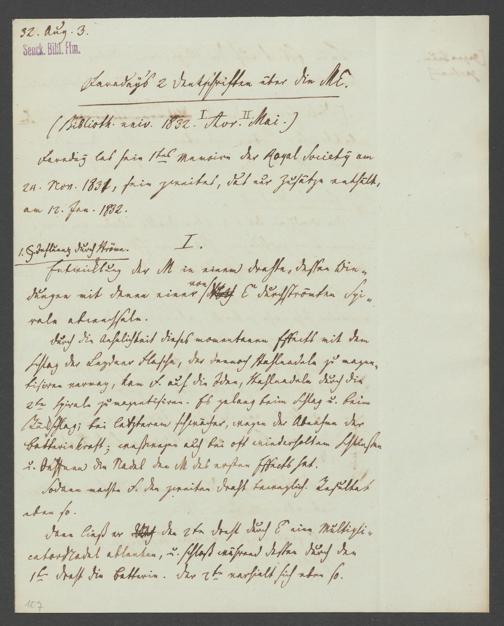 32. Aug. 3.
Senck. Bibl. Ffm.
Faraday's 2 Denkschriften über die ME.
(Biblioth. univ. 1832. I Avr. II Mai.)
Faraday las sein 1tes Memoire der Royal Society am
24. Nov. 1831, sein zweites, das nur Zusätze enthält,
am 12. Jan. 1832.
I.
durch Ströme.
Entwicklung der M in einem Drahte, dessen Win-
dungen mit denen einer von E durchströmten Spi-
rale abwechseln.
Durch die Aehnlichkeit dieses momentanen Effects mit dem
Schlag der Leydner Flasche, der dennoch Stahlnadeln zu magne-
tisiren vermag, kam F. auf die Idee, Stahlnadeln durch die
2te Spirale zu magnetisiren. Es gelang beim Schlag u. beim
Rückschlag; bei letzterem schwächer, wegen der Abnahme der
Batteriekraft; weswegen auch bei oft wiederholtem Schliessen
u. Oeffnen die Nadel den M des ersten Effects hat.
Sodann machte F. den zweiten Draht beweglich. Resultat
eben so.
Dann liess er den 2ten Draht durch E eine Multipli-
catornadel ablenken, u. schloss während dessen durch den
1ten Draht die Batterie. Der 2te verhielt sich eben so.
107